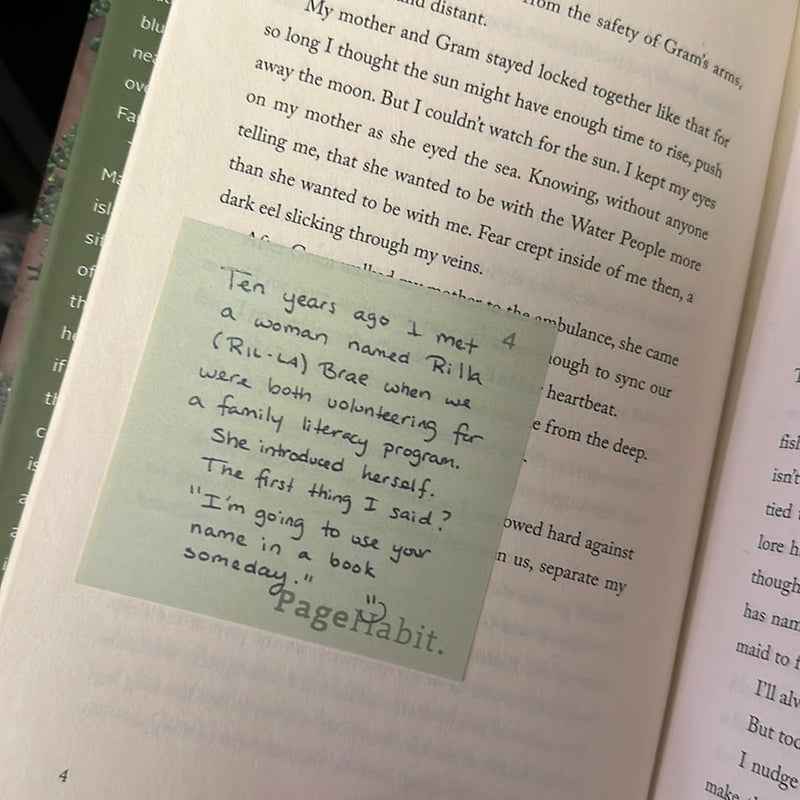 and distant.
from the safety of Gram's arms,
My mother and Gram stayed locked together like that for
so long I thought the sun might have enough time to rise, push
away the moon. But I couldn't watch for the sun. I kept my eyes
on my mother as she eyed the sea. Knowing, without anyone
telling me, that she wanted to be with the Water People more
than she wanted to be with me. Fear crept inside of me then, a
dark eel slicking through my veins.
my mother to the ambulance, she came
to sync our
heartbeat.
from the deep.
hard against
us, separate my
4
Ten years ago I met
a woman named Rilla
(RIL-LA) Brae when we
were both volunteering for
a family literacy program.
She introduced herself.
The first thing I said?
"I'm going to use your
name in a book
someday."
PageHabit.
4
blu
nea
ove
Fa
Ma
isl
sit
of
th
he
if
th
c
is
a
a
T
fish
isn't
tied
lore h
though
has nam
maid to f
I'll alv
But too
I nudge
make